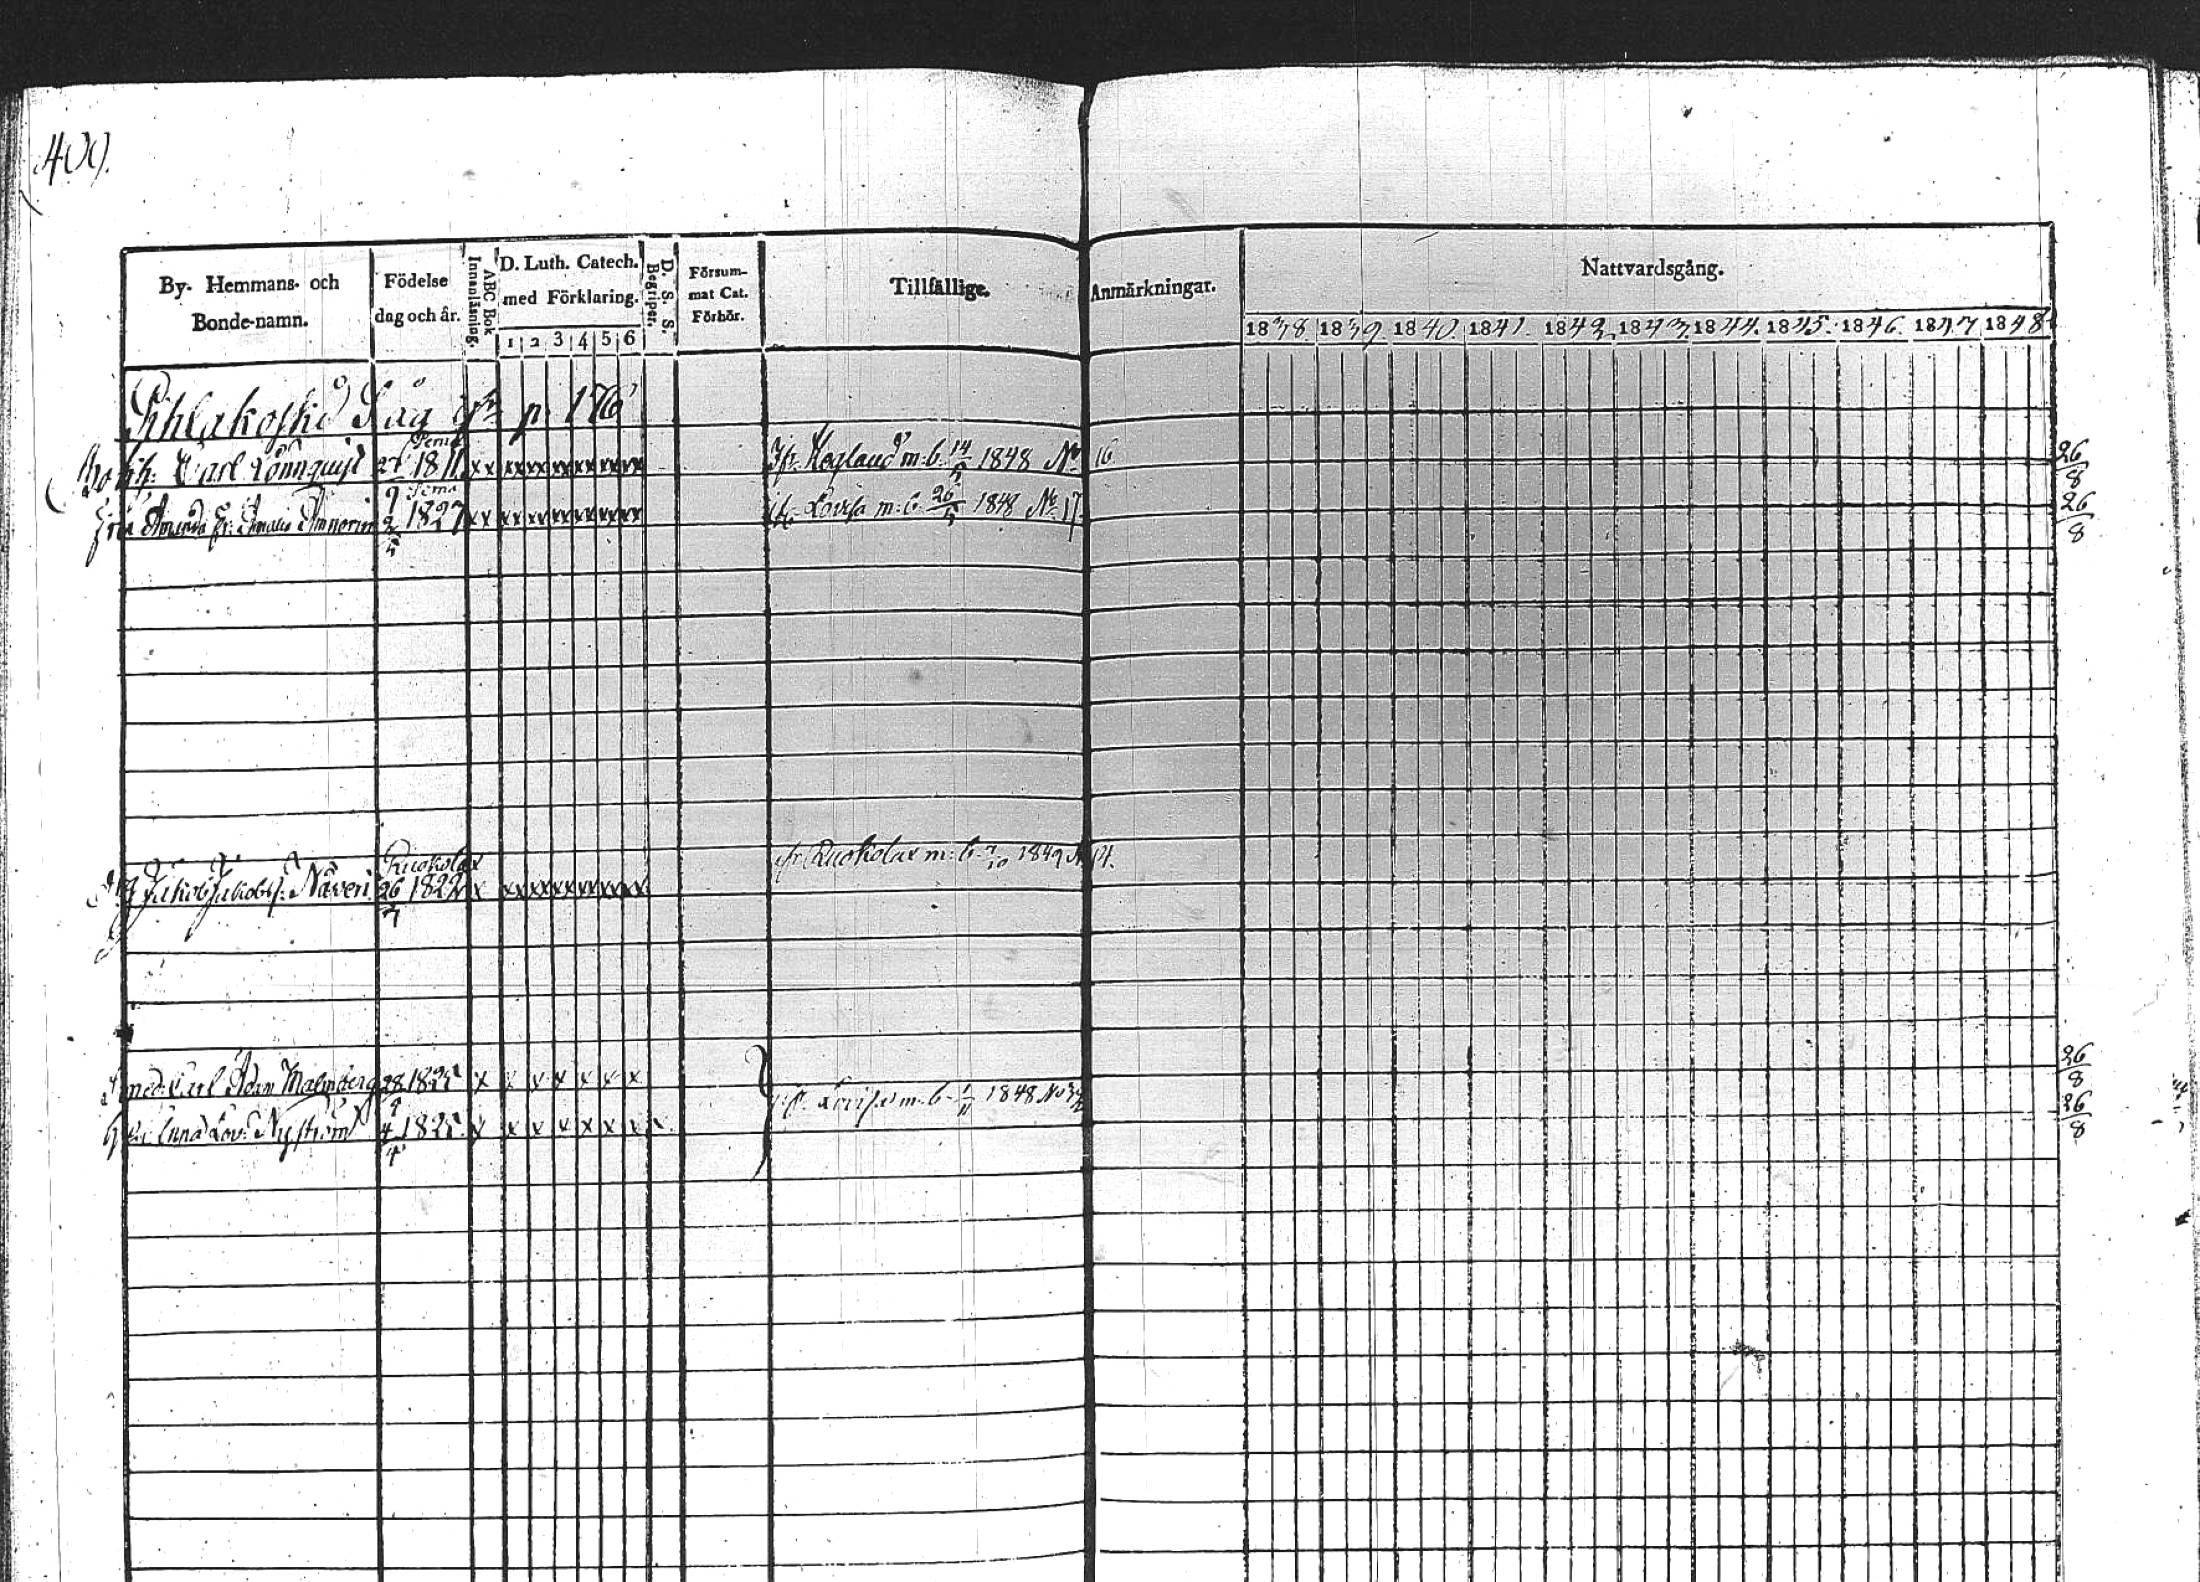 400.
By- Hemmans- och Bonde-namn.
Födelse dag och år.
ABC Bok Innanläsning.
D. Luth. Catech. med Förklaring.
1 2 3 4 5 6
D. S. S. Begriper.
Försum- mat Cat. Förhör.
Tillfällige.
Anmärkningar.
Nattvardsgång.
1838. 1839. 1840. 1841. 1842. 1843. 1844. 1845. 1846. 1847. 1848.
Såg p. 176
Bokh: Carl Lönnquist Perno 27/9 1811 xx xx xx xx xx xx xx fr. Hogland m: b. 14 1848 No 16 26/8
Amanda Perno 2/5 1827 xx xx xx xx xx xx xx fr. Lovisa m: b. 26/5 1848 No 17. 26/8
Jakob Jakobss: Näveri Ruokolax 26/7 1822 x xx xx xx xx xx xx fr. Ruokolax m: b. 1842 14.
Smed. Carl Adam Malmberg 28/9 1825 x x x x x x x fr. Lovisa m: b. 1/11 1848 No 26/8
Anna Lov: Nyström 4/4 1825. x x x x x x x x. 26/8